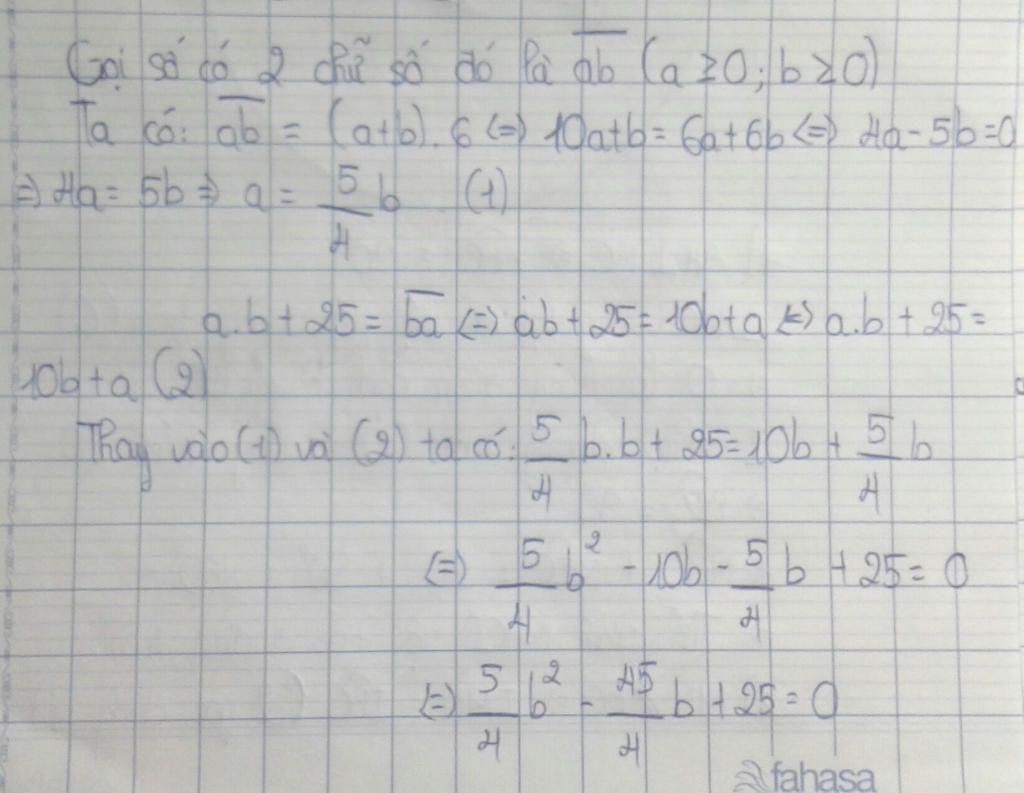 Gọi số có 2 chữ số đó là \overline{ab} (a ≥ 0; b ≥ 0)
Ta có: \overline{ab} = (a+b).6 <=> 10a+b = 6a+6b <=> 4a-5b=0
=> 4a = 5b => a = \frac{5}{4}b (1)
a.b + 25 = \overline{ba} <=> ab + 25 = 10b+a <=> a.b + 25 =
10b+a (2)
Thay vào (1) và (2) ta có: \frac{5}{4}b.b + 25 = 10b + \frac{5}{4}b
<=> \frac{5}{4}b² - 10b - \frac{5}{4}b + 25 = 0
<=> \frac{5}{4}b² - \frac{45}{4}b + 25 = 0
fahasa